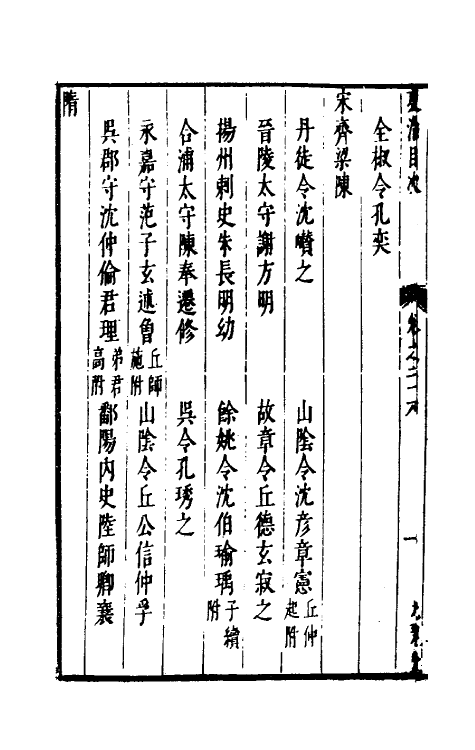 目次 卷之二十六 一
全椒令孔奕
宋齊梁陳
丹徒令沈巑之 山陰令沈彦章憲 丘仲起附
晉陵太守謝方明 故章令丘德玄寂之
揚州刺史朱長明幼 餘姚令沈伯瑜瑀 子續附
合浦太守陳奉遷修 吳令孔琇之
永嘉守范子玄述曾 丘師施附 山陰令丘公信仲孚
吳郡守沈仲倫君理 弟君高附 鄱陽内史陸師卿襄
隋